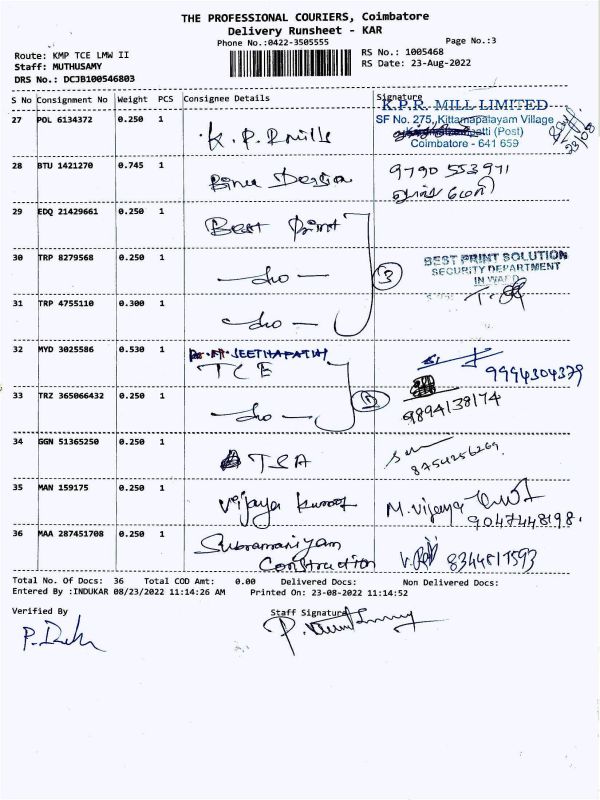 THE PROFESSIONAL COURIERS, Coimbatore
Delivery Runsheet - KAR
Phone No.:0422-3505555
Page No.:3
Route: KMP TCE LMW II
RS No.: 1005468
Staff: MUTHUSAMY
RS Date: 23-Aug-2022
DRS No.: DCJB100546803
S No Consignment No Weight PCS Consignee Details Signature
27 POL 6134372 0.250 1 K.P.R mills K.P.R. MILL LIMITED
SF No. 275, Kittampalayam Village
(Post)
Coimbatore - 641 659
28 BTU 1421270 0.745 1 9790 553971
29 EDQ 21429661 0.250 1 Best Print
30 TRP 8279568 0.250 1 -do- 3 BEST PRINT SOLUTION
SECURITY DEPARTMENT
31 TRP 4755110 0.300 1 -do-
32 MYD 3025586 0.530 1 TCE 9994304379
33 TRZ 365066432 0.250 1 -do- 9894138174
34 GGN 51365250 0.250 1 TSA 8754256269
35 MAN 159175 0.250 1 Vijaya Kumar M. Vijaya
9047448198.
36 MAA 287451708 0.250 1 Subramaniyam
Construction 8344817593
Total No. Of Docs: 36 Total COD Amt: 0.00 Delivered Docs: Non Delivered Docs:
Entered By :INDUKAR 08/23/2022 11:14:26 AM Printed On: 23-08-2022 11:14:52
Verified By
Staff Signature